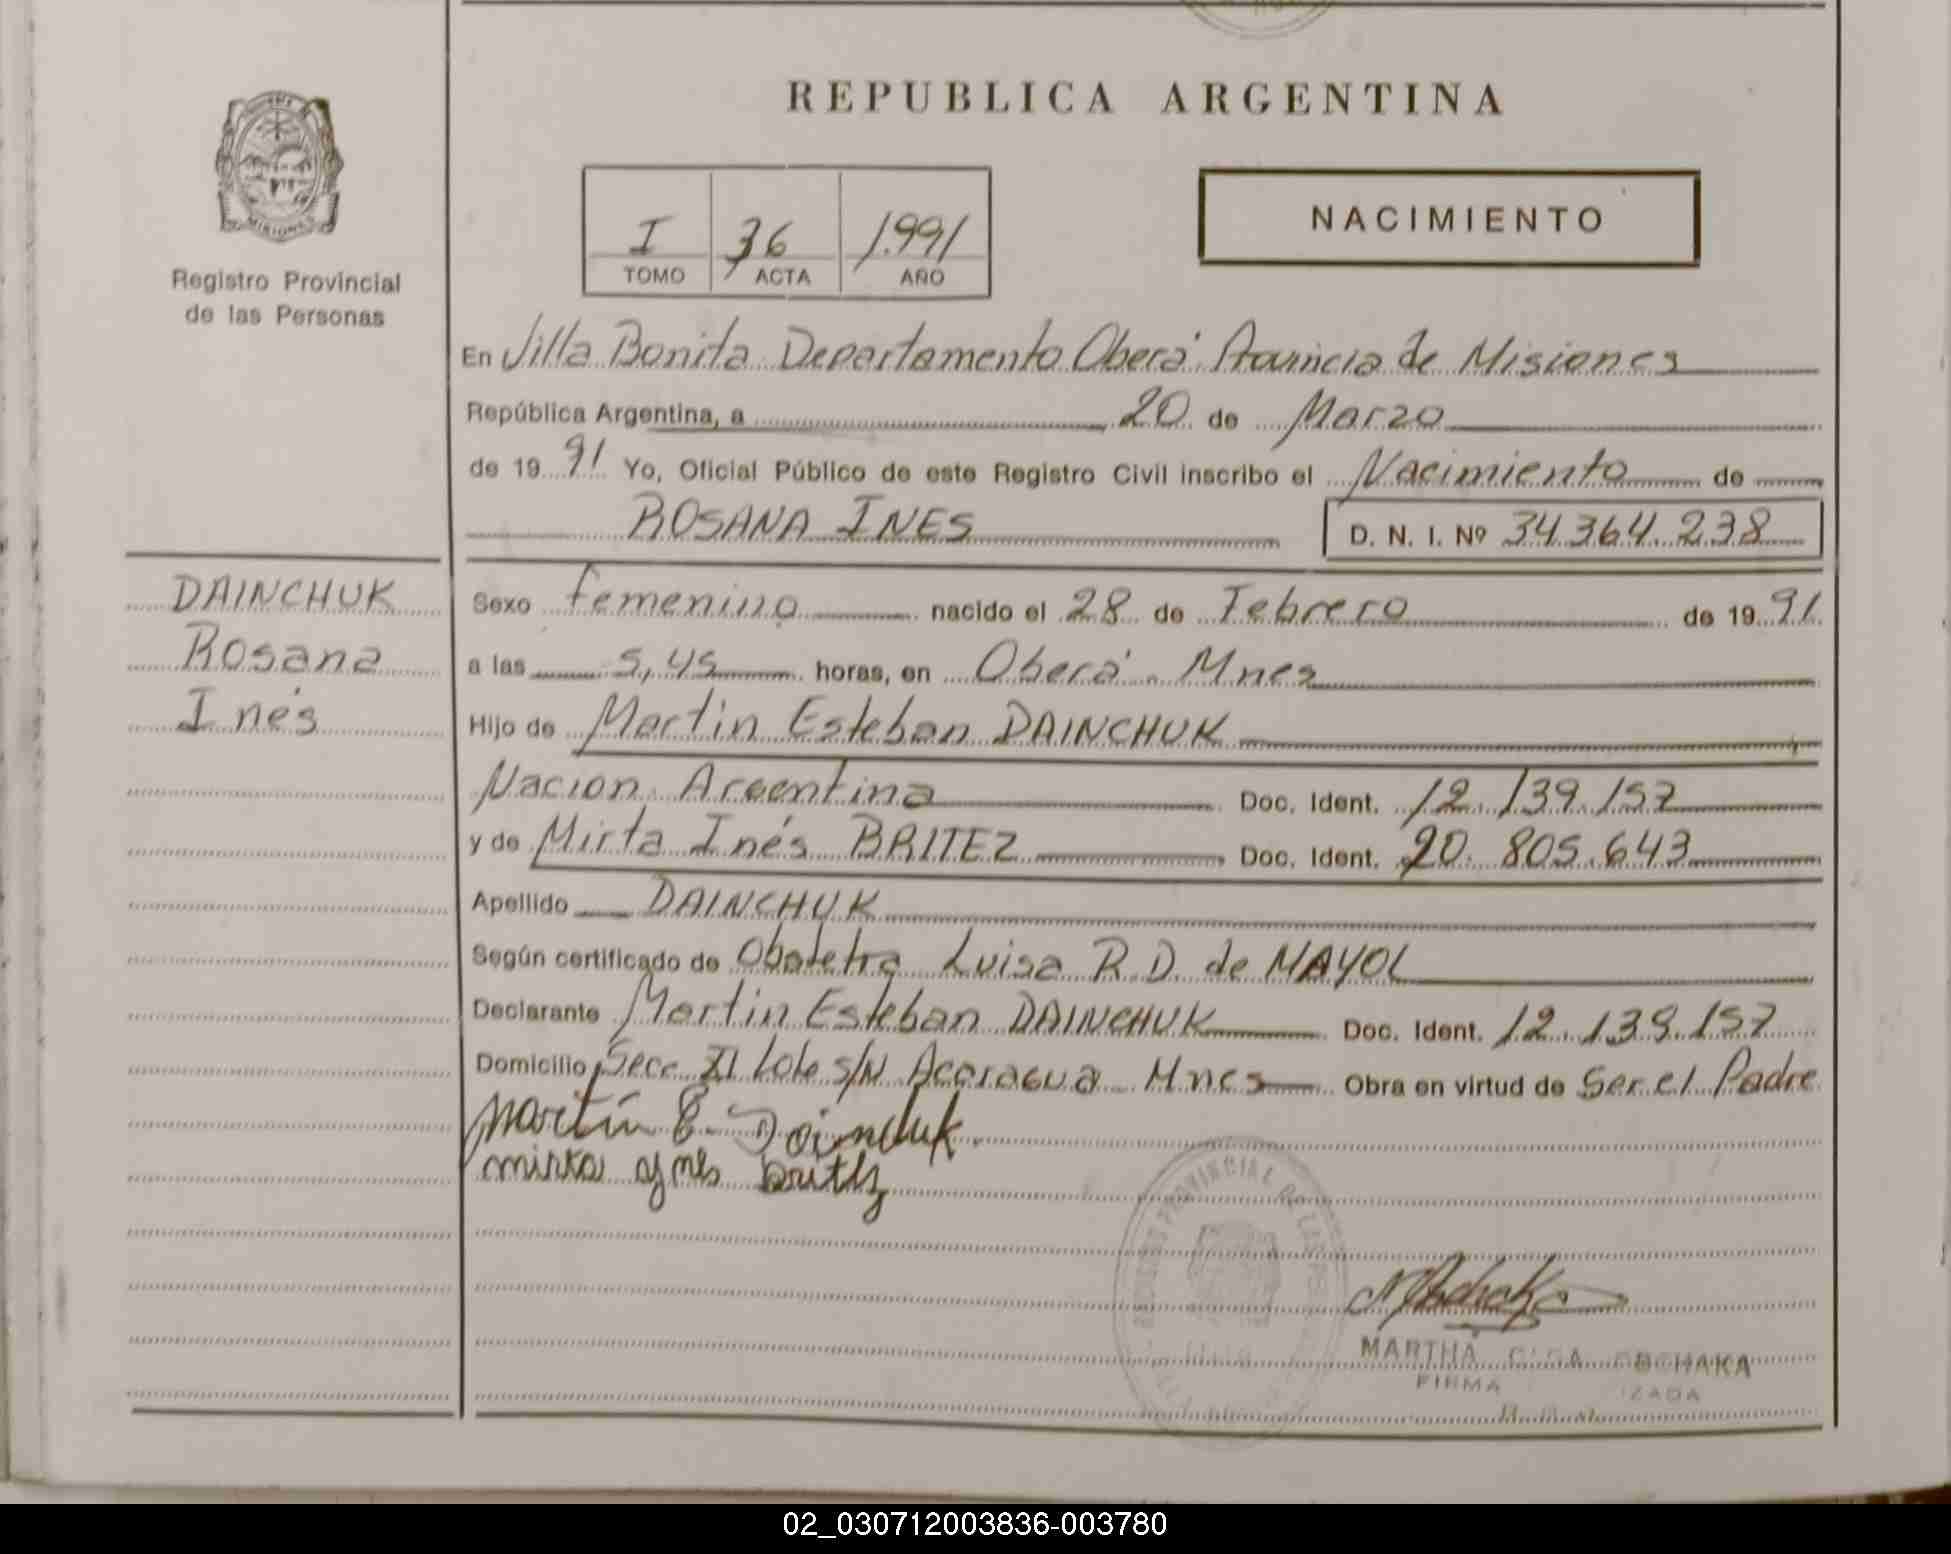 REPUBLICA ARGENTINA
MISIONES
Registro Provincial
de las Personas
I 36 1.991
TOMO ACTA AÑO
NACIMIENTO
En Villa Bonita Departamento Oberá Provincia de Misiones
República Argentina, a 20 de Marzo
de 19 91 Yo, Oficial Público de este Registro Civil inscribo el Nacimiento de
ROSANA INES D. N. I. Nº 34.364.238
DAINCHUK
Rosana
Inés
Sexo femenino nacido el 28 de Febrero de 19 91
a las 5,45 horas, en Oberá - Mnes
Hijo de Martin Esteban DAINCHUK
Nacion. Argentina Doc. Ident. 12.139.157
y de Mirta Inés BRITEZ Doc. Ident. 20.805.643
Apellido DAINCHUK
Según certificado de Obstetra Luisa R.D. de MAYOL
Declarante Martin Esteban DAINCHUK Doc. Ident. 12.139.157
Domicilio Secc. XI Lote s/N Acaragua Mnes Obra en virtud de Ser el Padre
Martín E. Dainchuk
mirta ynes britez
PROVINCIAL DE LAS
MARTHA
FIRMA
02_030712003836-003780